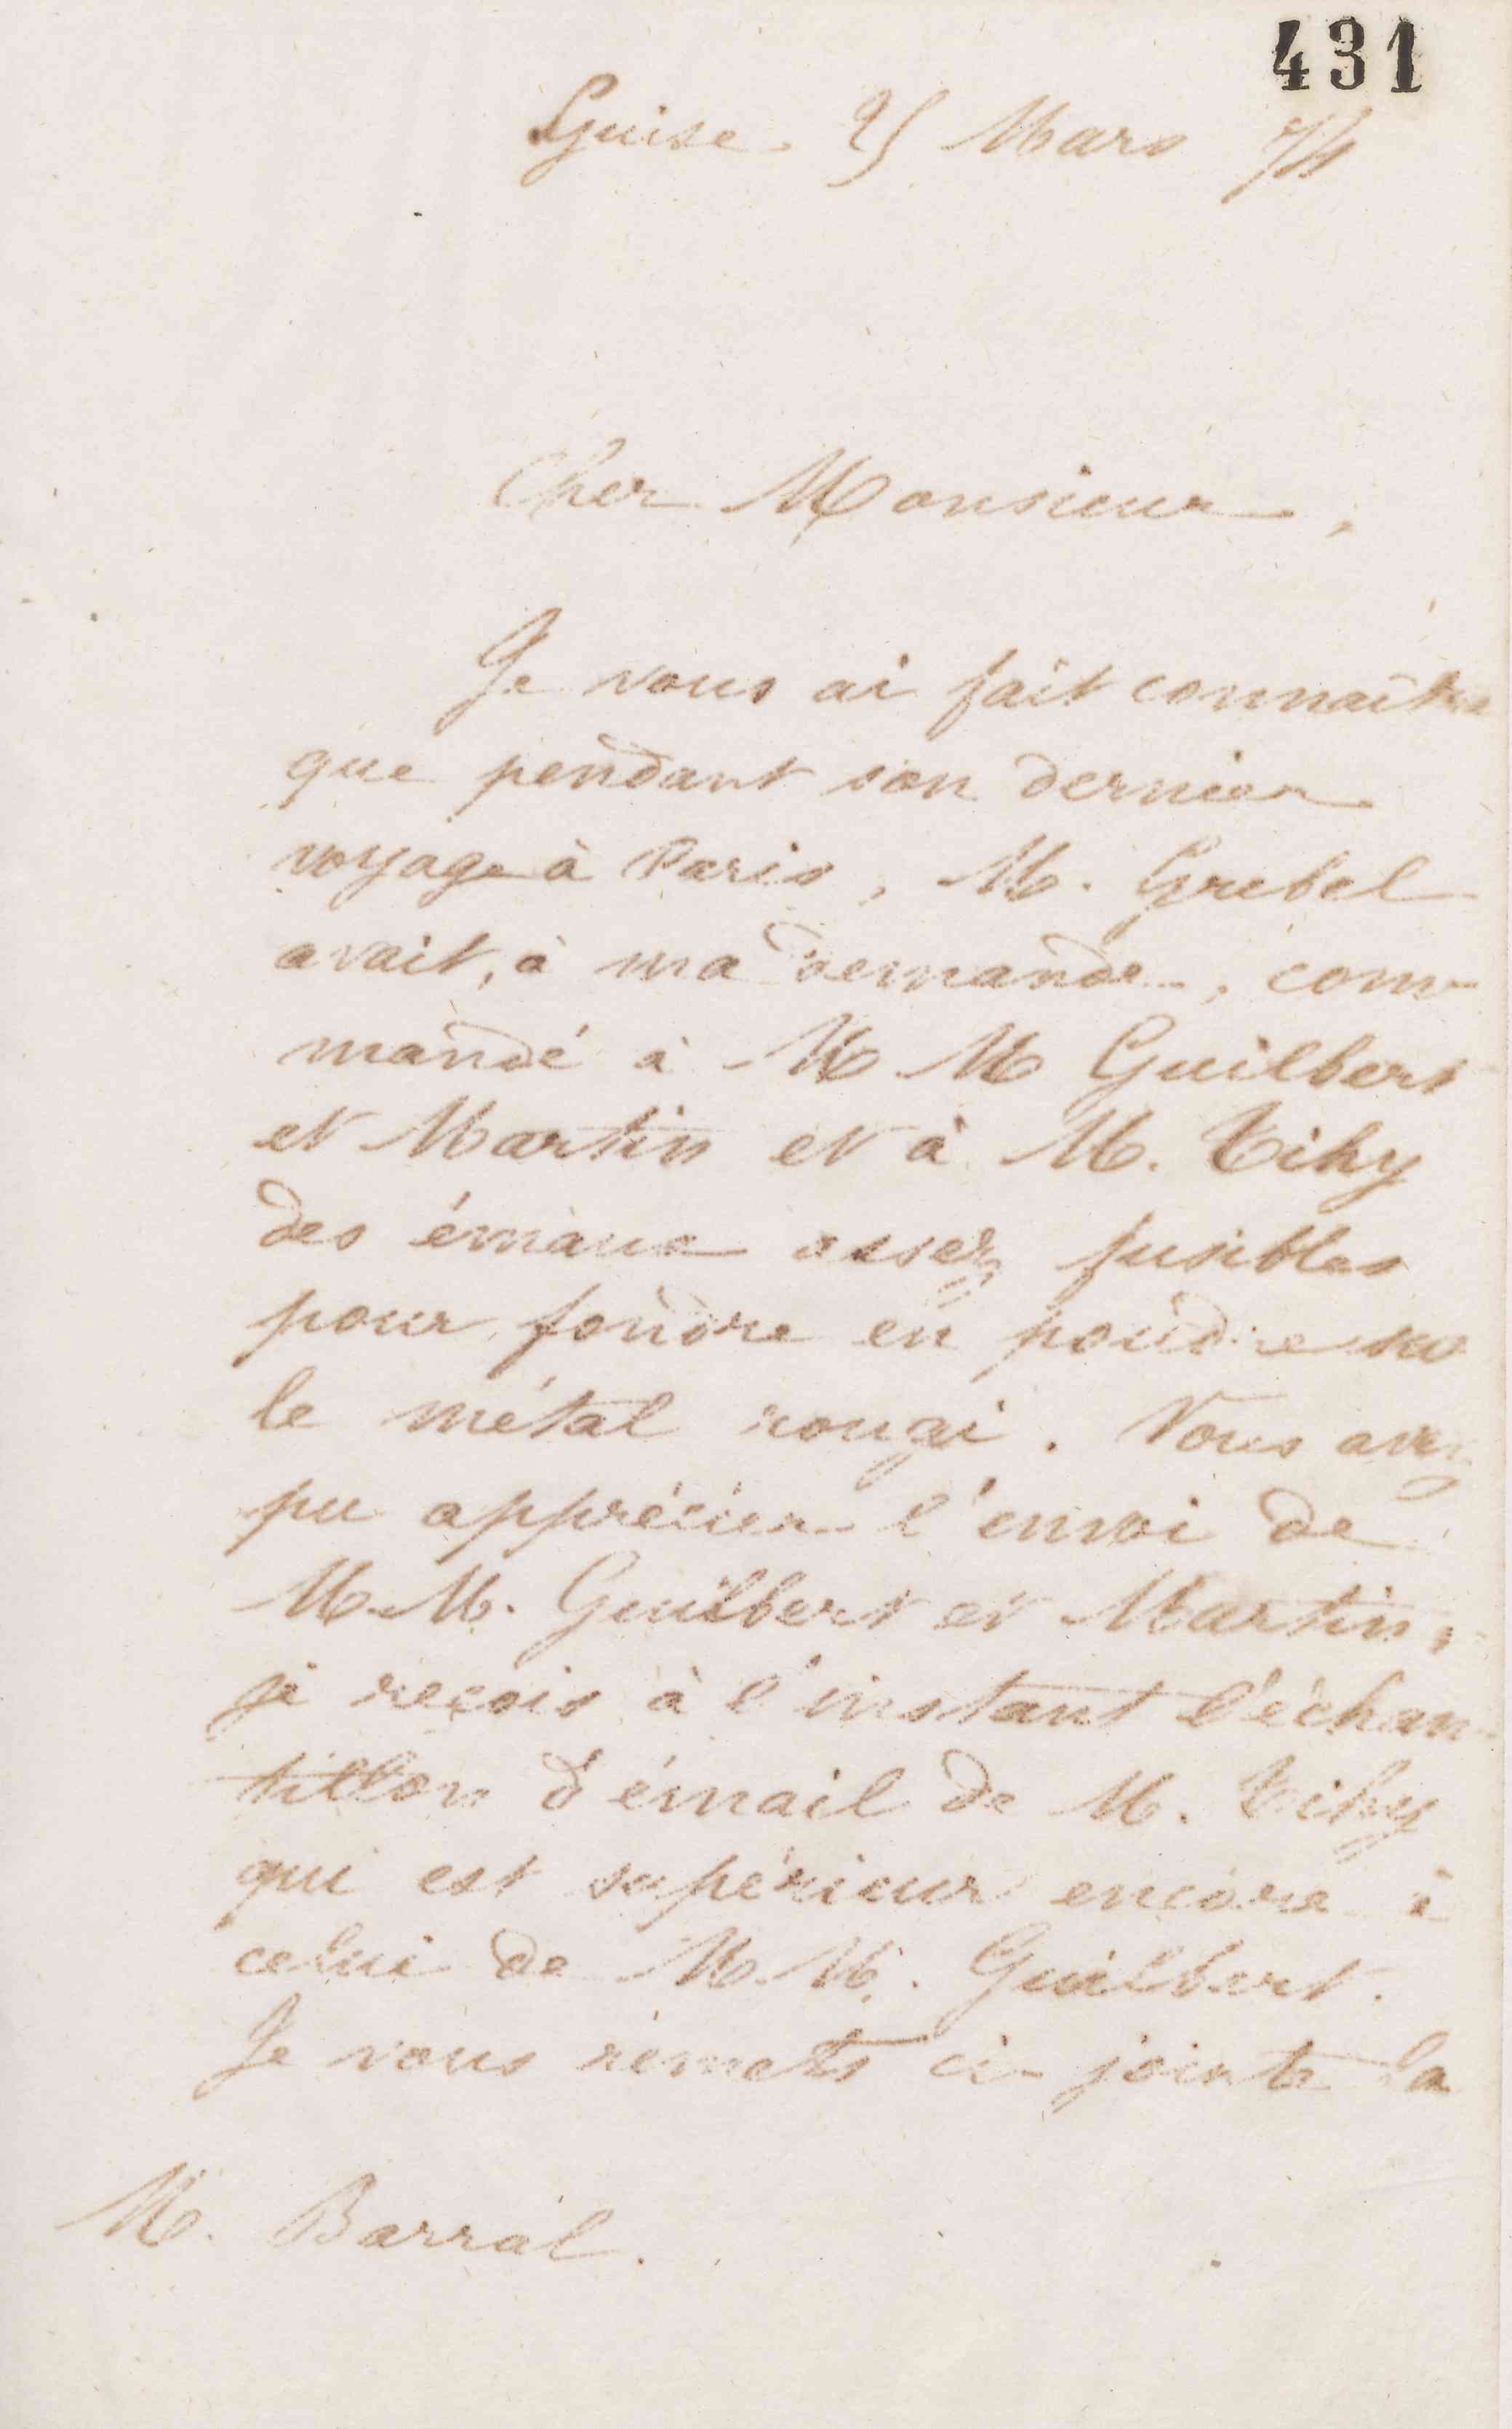 431
Guise 25 Mars 74
Cher Monsieur,
Je vous ai fait connaître
que pendant son dernier
voyage à Paris, M. Grebel
avait, à ma demande, com-
mandé à M M Guilbert
et Martin et à M. Tihy
des émaux assez fusibles
pour fondre en poudre sur
le métal rougi. Vous avez
pu apprécier l'envoi de
M.M. Guilbert et Martin,
je reçois à l'instant l'échan-
tillon d'émail de M. Tihy
qui est supérieur encore à
celui de M.M. Guilbert.
Je vous remets ci-jointe la
M. Barral.